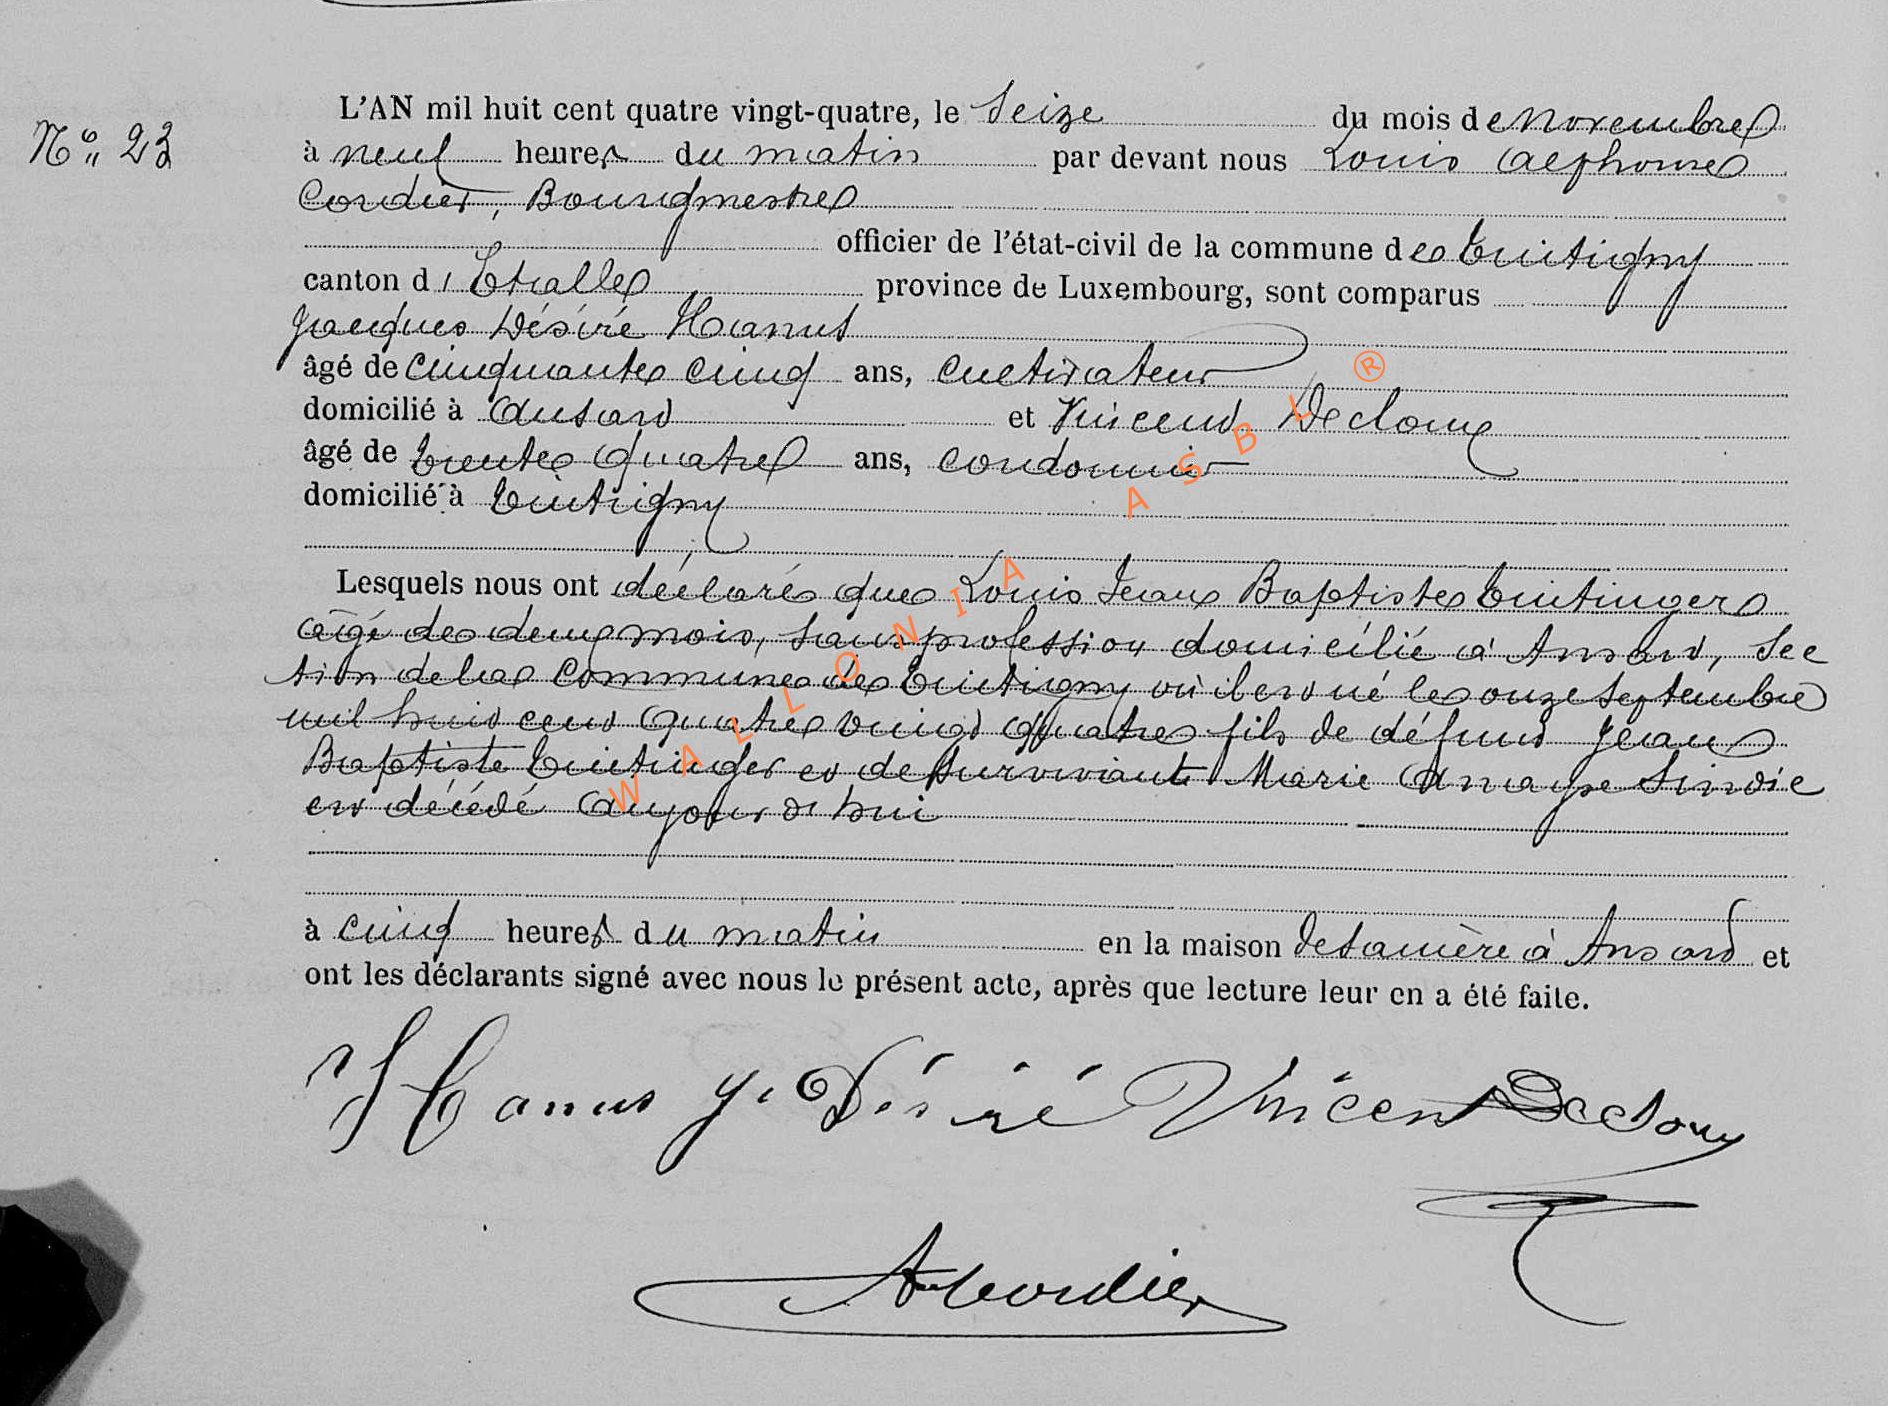 N° 23
L'AN mil huit cent quatre vingt-quatre, le Seize du mois de Novembre
à neuf heures du matin par devant nous Louis Alphonse
Cordier, Bourgmestre
officier de l'état-civil de la commune de Tintigny
canton d'Etalle province de Luxembourg, sont comparus
Jacques Désiré Hanus
âgé de cinquante cinq ans, cultivateur
domicilié à Ansard et Vincend Decloux
âgé de trente quatre ans, cordonnier
domicilié à Tintigny
Lesquels nous ont déclaré que Louis Jean Baptiste Tintinger
âgé de deux mois, sans profession domicilié à Ansard, Sec
tion de la Commune de Tintigny où il est né le onze Septembre
mil huit cent quatre vingt quatre fils de défunt Jean
Baptiste Tintinger et de survivante Marie Simoie
est décédé aujourd'hui
à cinq heures du matin en la maison de sa mère à Ansard et
ont les déclarants signé avec nous le présent acte, après que lecture leur en a été faite.
Hanus J. Désiré Vincent Decloux
A Cordier
WALLONIA ASBL ®